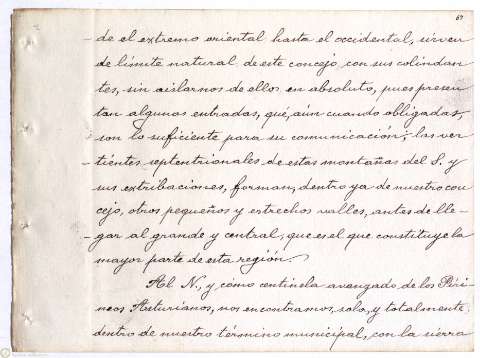 67
-de el extremo oriental hasta el occidental, sirven
de límite natural de este concejo con sus colindan
tes, sin aislarnos de ellos en absoluto, pues presen
tan algunas entradas, que, aún cuando obligadas,
son lo suficiente para su comunicación; las ver
-tientes septentrionales de estas montañas del S. y
sus extribaciones, forman, dentro ya de nuestro con
cejo, otros pequeños y estrechos valles, antes de lle-
-gar al grande y central, que es el que constituye la
mayor parte de esta región.
Al N., y como centinela avanzado de los Piri
neos Asturianos, nos encontramos, solo, y totalmente,
dentro de nuestro término municipal, con la sierra